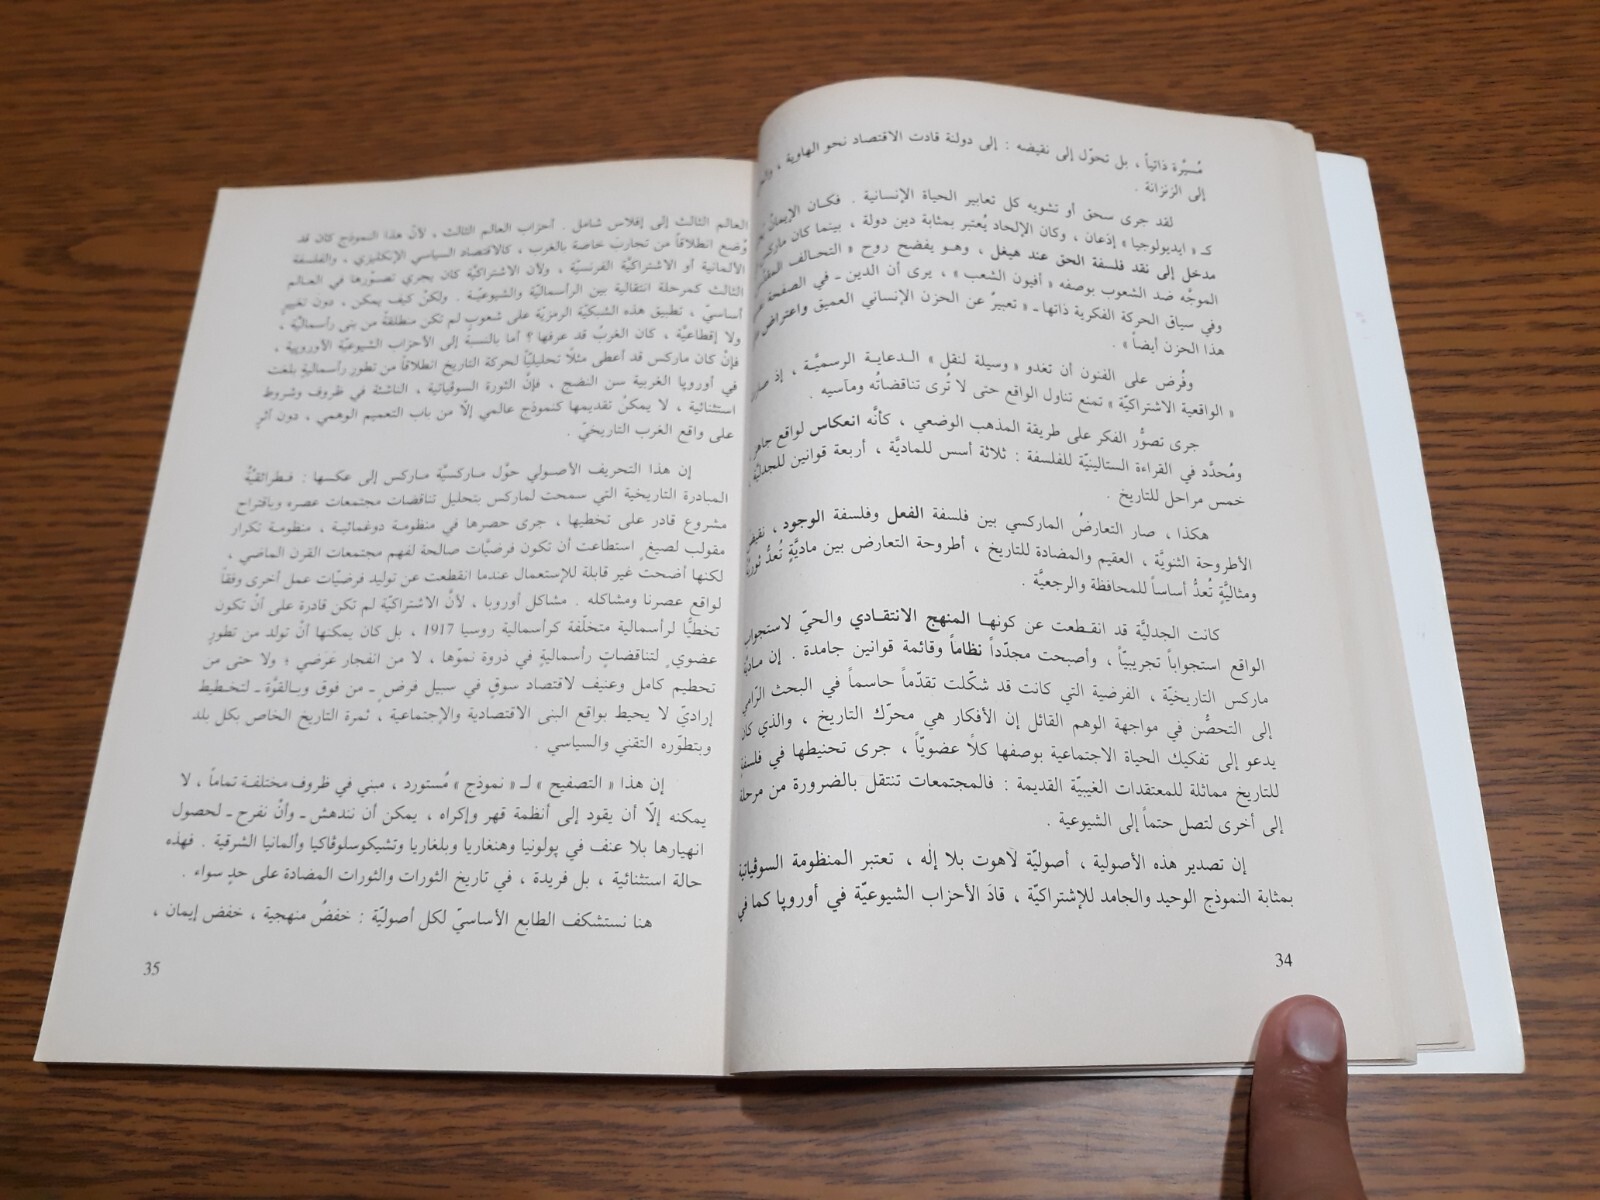 مُسيَّرة ذاتياً ، بل تحوّل إلى نقيضه : إلى دولنة قادت الاقتصاد نحو الهاوية ،
إلى الزنزانة .
لقد جرى سحق أو تشويه كل تعابير الحياة الإنسانية . فكان الإيمان
كـ « ايديولوجيا » إذعان ، وكان الإلحاد يُعتبر بمثابة دين دولة ، بينما كان ماركس
مدخل إلى نقد فلسفة الحق عند هيغل ، وهو يفضح روح « التحالف
الموجَّه ضد الشعوب بوصفه « أفيون الشعب » ، يرى أن الدين ـ في الصفحة
وفي سياق الحركة الفكرية ذاتها ـ « تعبيرٌ عن الحزن الإنساني العميق واعتراض
هذا الحزن أيضاً » .
وفُرض على الفنون أن تغدو « وسيلة لنقل » الدعاية الرسميَّة ، إذ
« الواقعية الاشتراكيّة » تمنع تناول الواقع حتى لا تُرى تناقضاتُه ومآسيه .
جرى تصوُّر الفكر على طريقة المذهب الوضعي ، كأنَّه انعكاس لواقع جاهز
ومُحدَّد في القراءة الستالينيّة للفلسفة : ثلاثة أسس للماديَّة ، أربعة قوانين للجدليَّة ،
خمس مراحل للتاريخ .
هكذا ، صار التعارضُ الماركسي بين فلسفة الفعل وفلسفة الوجود ، نقيض
الأطروحة الثنويَّة ، العقيم والمضادة للتاريخ ، أطروحة التعارض بين ماديَّةٍ تُعدُّ ثوريَّة
ومثاليَّةٍ تُعدُّ أساساً للمحافظة والرجعيَّة .
كانت الجدليَّة قد انقطعت عن كونها المنهج الانتقادي والحيّ لاستجواب
الواقع استجواباً تجريبيّاً ، وأصبحت مجدّداً نظاماً وقائمة قوانين جامدة . إن ماديَّة
ماركس التاريخيّة ، الفرضية التي كانت قد شكّلت تقدّماً حاسماً في البحث الرّامي
إلى التحصُّن في مواجهة الوهم القائل إن الأفكار هي محرّك التاريخ ، والذي كان
يدعو إلى تفكيك الحياة الاجتماعية بوصفها كلاً عضويّاً ، جرى تحنيطها في فلسفةٍ
للتاريخ مماثلة للمعتقدات الغيبيّة القديمة : فالمجتمعات تنتقل بالضرورة من مرحلة
إلى أخرى لتصل حتماً إلى الشيوعية .
إن تصدير هذه الأصولية ، أصوليّة لاهوت بلا إله ، تعتبر المنظومة السوڤياتية
بمثابة النموذج الوحيد والجامد للإشتراكيّة ، قادَ الأحزاب الشيوعيّة في أوروپا كما في
34
العالم الثالث إلى إفلاس شامل . أحزاب العالم الثالث ، لأنّ هذا النموذج كان قد
وُضع انطلاقاً من تجارب خاصة بالغرب ، كالاقتصاد السياسي الإنكليزي ، والفلسفة
الألمانية أو الاشتراكيّة الفرنسيّة ، ولأن الاشتراكيّة كان يجري تصوّرها في العالم
الثالث كمرحلة انتقالية بين الرأسماليّة والشيوعيّة . ولكنْ كيف يمكن ، دون تغييرٍ
أساسيّ ، تطبيق هذه الشبكيّة الرمزيّة على شعوبٍ لم تكن منطلقةً من بنى رأسماليّة ،
ولا إقطاعيَّة ، كان الغربُ قد عرفها ؟ أما بالنسبة إلى الأحزاب الشيوعيّة الأوروبية ،
فإنْ كان ماركس قد أعطى مثلًا تحليليّاً لحركة التاريخ انطلاقاً من تطور رأسماليةٍ بلغت
في أوروپا الغربية سن النضج ، فإنَّ الثورة السوڤياتية ، الناشئة في ظروف وشروط
استثنائية ، لا يمكنُ تقديمها كنموذج عالمي إلّا من باب التعميم الوهمي ، دون أثرٍ
على واقع الغرب التاريخيّ .
إن هذا التحريف الأصولي حوَّل ماركسيَّة ماركس إلى عكسها : فطرائقيَّةُ
المبادرة التاريخية التي سمحت لماركس بتحليل تناقضات مجتمعات عصره وباقتراح
مشروع قادر على تخطيها ، جرى حصرها في منظومة دوغمائية ، منظومة تكرار
مقولب لصيغٍ استطاعت أن تكون فرضيّات صالحة لفهم مجتمعات القرن الماضي ،
لكنها أضحت غير قابلة للإستعمال عندما انقطعت عن توليد فرضيّات عمل أخرى وفقاً
لواقع عصرنا ومشاكله . مشاكل أوروبا ، لأنَّ الاشتراكيّة لم تكن قادرة على أنْ تكون
تخطيًّا لرأسمالية متخلّفة كرأسمالية روسيا 1917 ، بل كان يمكنها أنْ تولد من تطورٍ
عضويٍ لتناقضاتِ رأسماليةٍ في ذروة نموّها ، لا من انفجار عَرَضي ؛ ولا حتى من
تحطيم كامل وعنيف لاقتصاد سوقٍ في سبيل فرضٍ ـ من فوق وبالقوَّة ـ لتخطيط
إراديّ لا يحيط بواقع البنى الاقتصادية والإجتماعية ، ثمرة التاريخ الخاص بكل بلد
وبتطوّره التقني والسياسي .
إن هذا « التصفيح » لـ « نموذج » مُستورد ، مبني في ظروف مختلفة تماماً ، لا
يمكنه إلّا أن يقود إلى أنظمة قهر وإكراه ، يمكن أن نندهش ـ وأنْ نفرح ـ لحصول
انهيارها بلا عنف في پولونيا وهنغاريا وبلغاريا وتشيكوسلوڤاكيا وألمانيا الشرقية . فهذه
حالة استثنائية ، بل فريدة ، في تاريخ الثورات والثورات المضادة على حدٍ سواء .
هنا نستشكف الطابع الأساسيّ لكل أصوليّة : خفضُ منهجية ، خفض إيمان ،
35